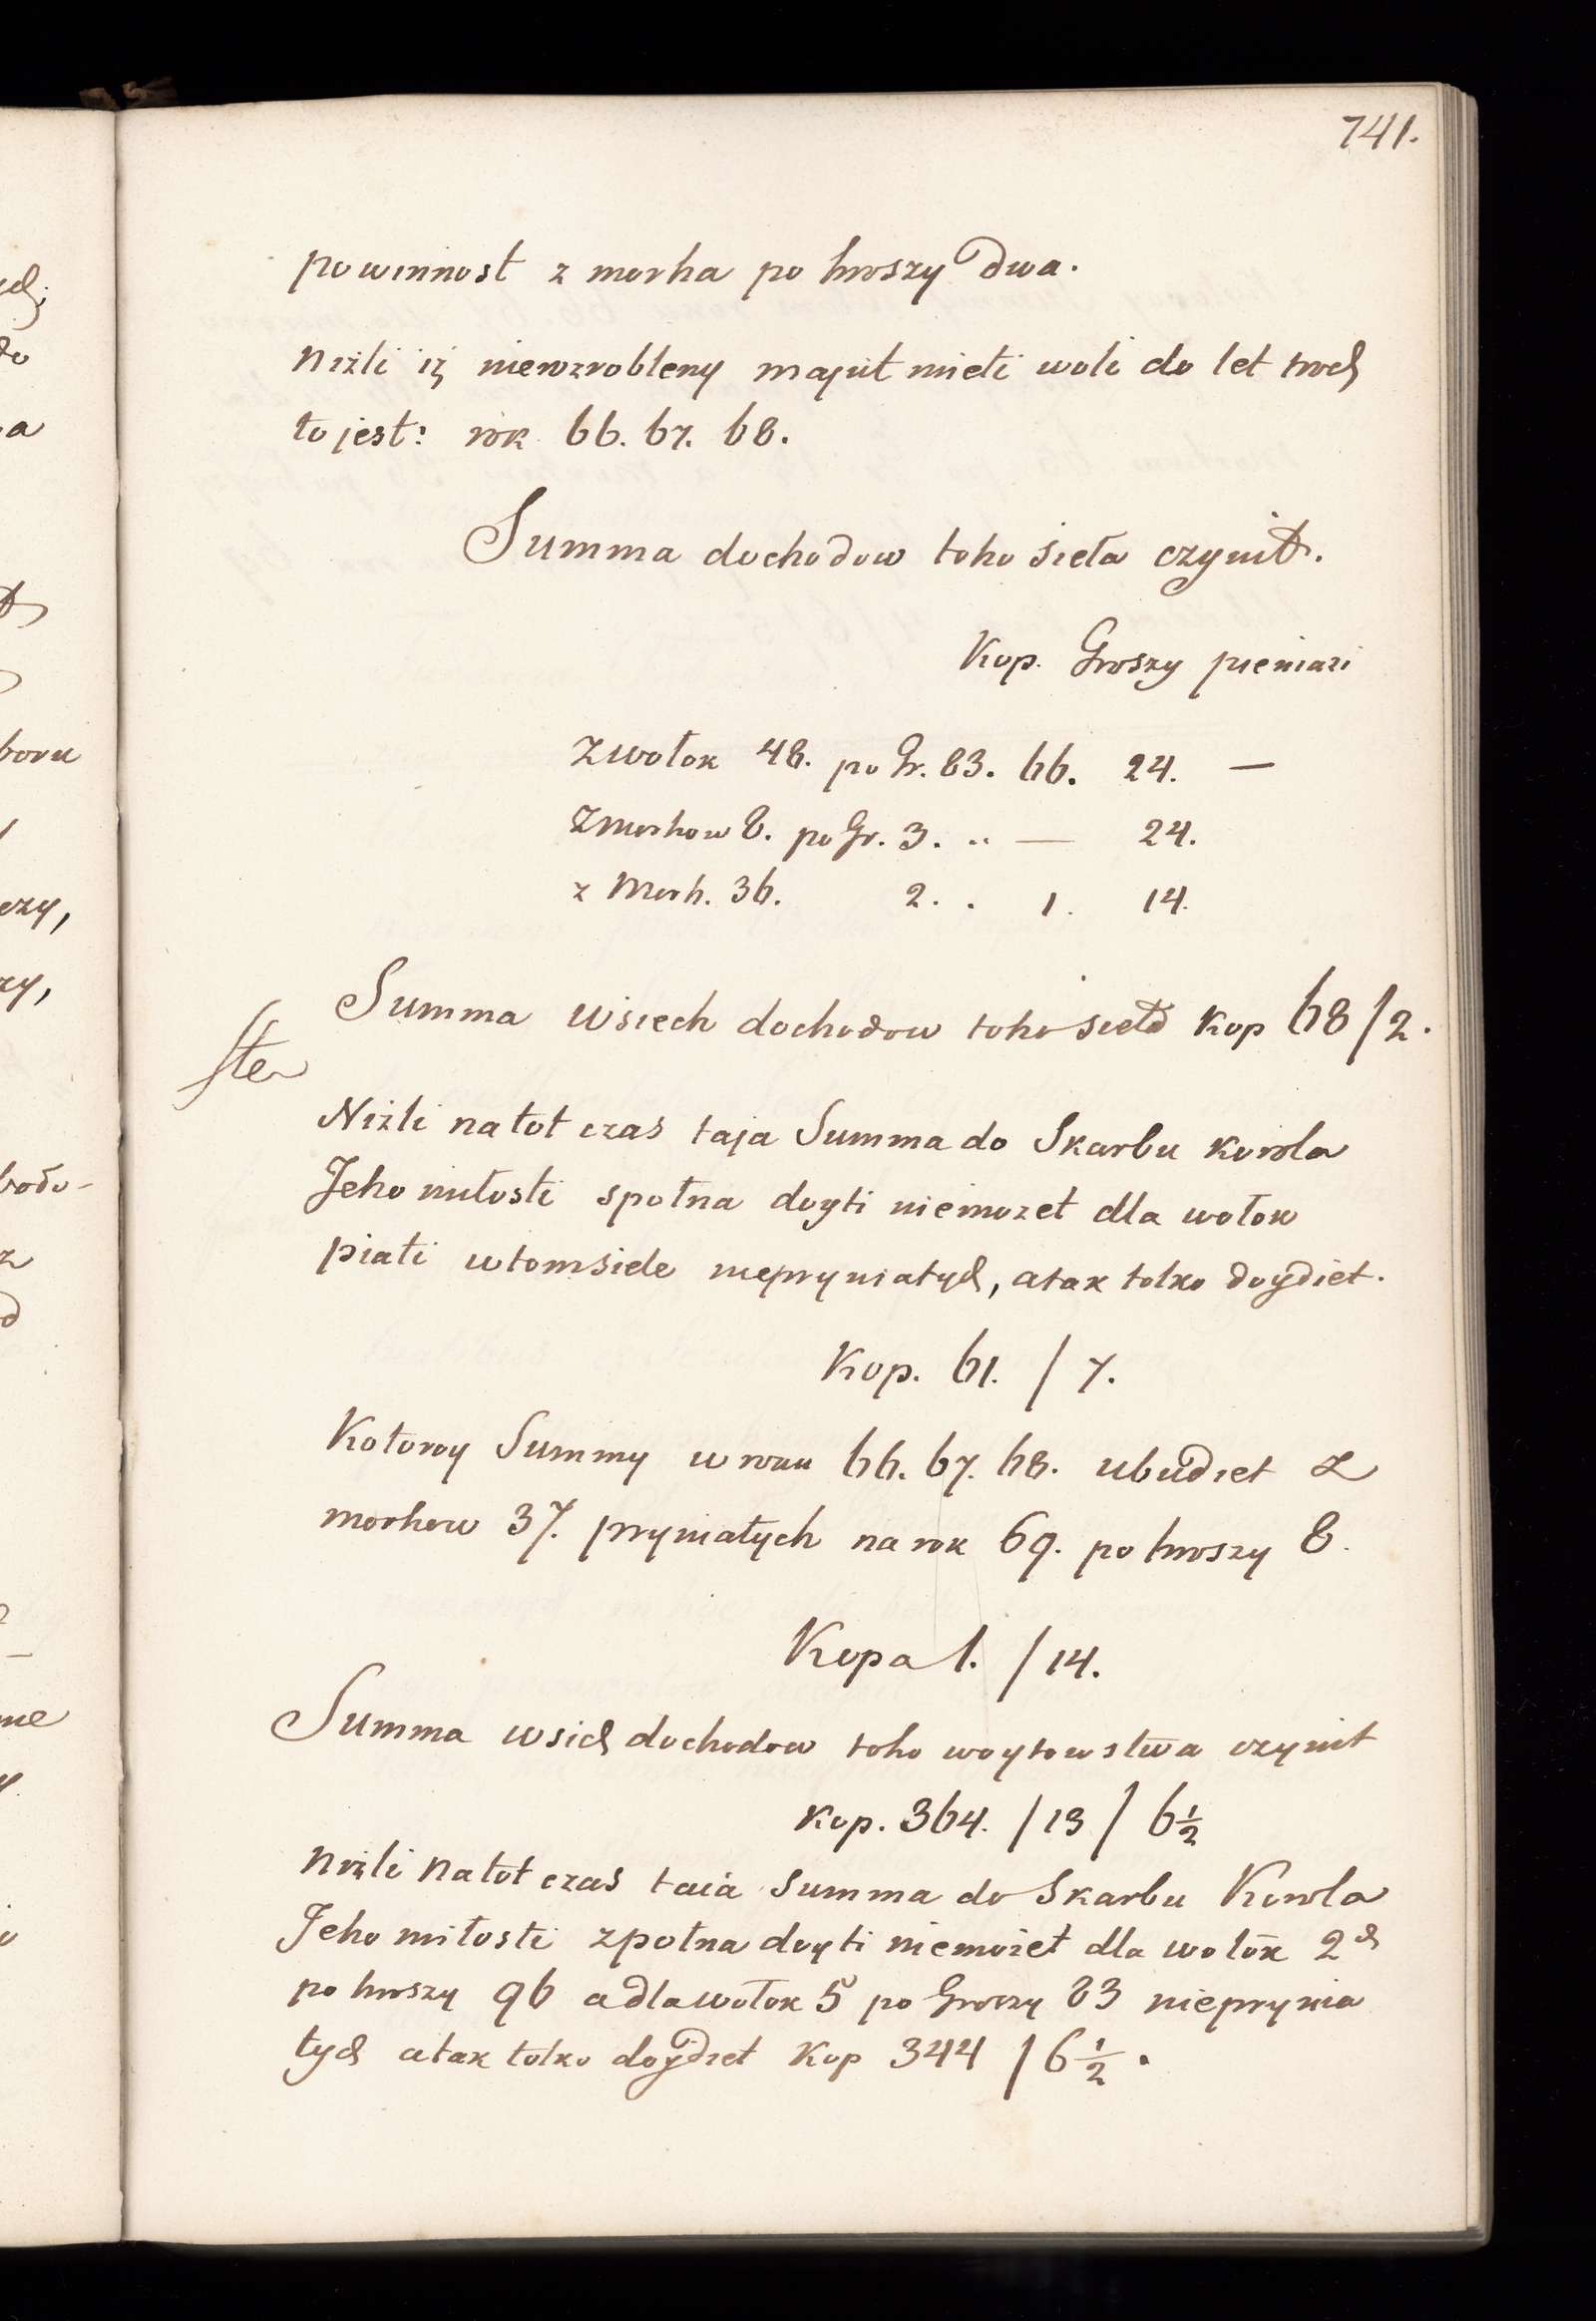 741.
powinnost z morha po hroszy dwa.
Niżli iż niewzrobleny majut mieti woli do let troch
to jest: rok 66. 67. 68.
Summa dochodow toho sieła czynit.
Kop. Groszy pieniazi
Zwołok 48. po Gr. 83. 66. 24. —
Zmorhow 8. po Gr. 3. .. — 24.
z Morh. 36. 2. . 1. 14.
Summa wsiech dochodow toho sieła kop 68/2.
Niżli na tot czas taja Summa do Skarbu korola
Jeho miłosti społna doyti niemozet dla wołok
piati wtom siele nepryniatych, atak tolko doydiet.
Kop. 61. / 7.
Kotoroy Summy w roku 66. 67. 68. ubudiet z
morhow 37. pryniatych na rok 69. po hroszy 2.
Kopa 1. / 14.
Summa wsich dochodow toho woytowstwa czynit
kop. 364. / 13 / 6½
Niżli na tot czas taia Summa do Skarbu Korola
Jeho miłosti zpołna doyti niemożet dla wołok 2ch
po hroszy 96 a dla wołok 5 po Groszy 83 nieprynia
tych atak tolko doydiet Kop 344 / 6½.